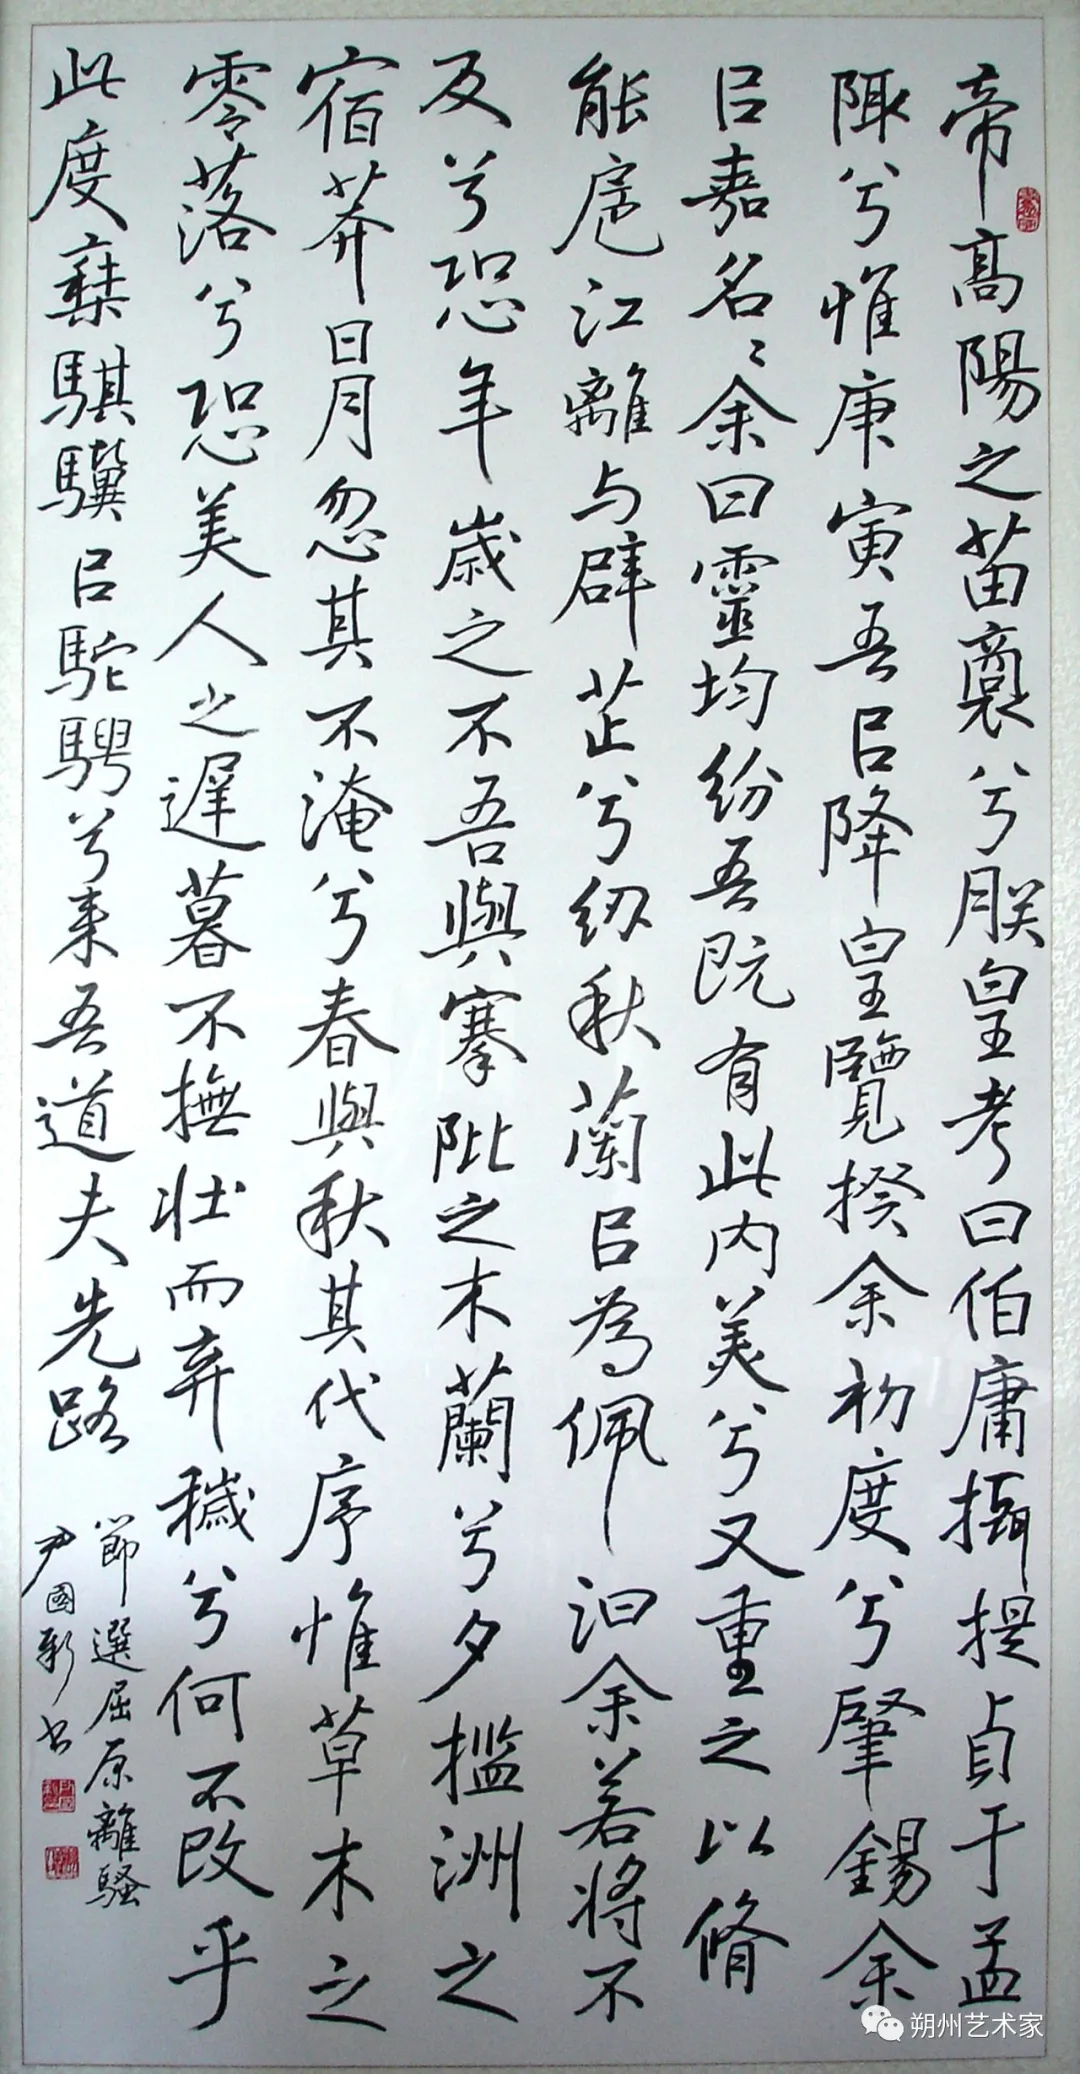 帝高陽之苗裔兮朕皇考曰伯庸攝提貞于孟
陬兮惟庚寅吾㠯降皇覽揆余初度兮肇錫余
㠯嘉名名余曰靈均紛吾既有此内美兮又重之以脩
能扈江離与辟芷兮纫秋蘭㠯為佩汩余若將不
及兮恐年歲之不吾與搴阰之木蘭兮夕擥洲之
宿莽日月忽其不淹兮春與秋其代序惟草木之
零落兮恐美人之遲暮不撫壯而弃穢兮何不改乎
此度椉騏驥㠯駝騁兮来吾道夫先路
節選屈原離騷
尹國新书
朔州艺术家